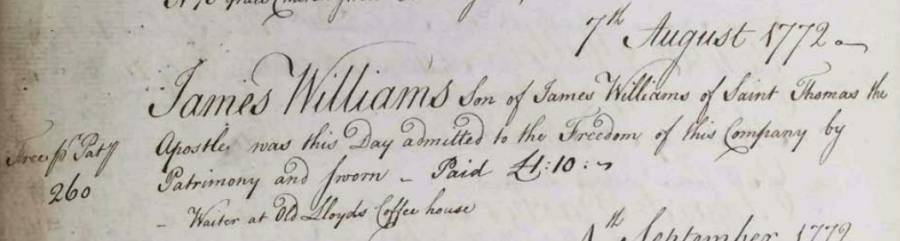 7th August 1772
James Williams Son of James Williams of Saint Thomas the
Free pr Paty Apostle was this Day admitted to the Freedom of this Company by
260 Patrimony and sworn - Paid £1:10:-
- Waiter at Old Lloyds Coffee house
September 1772